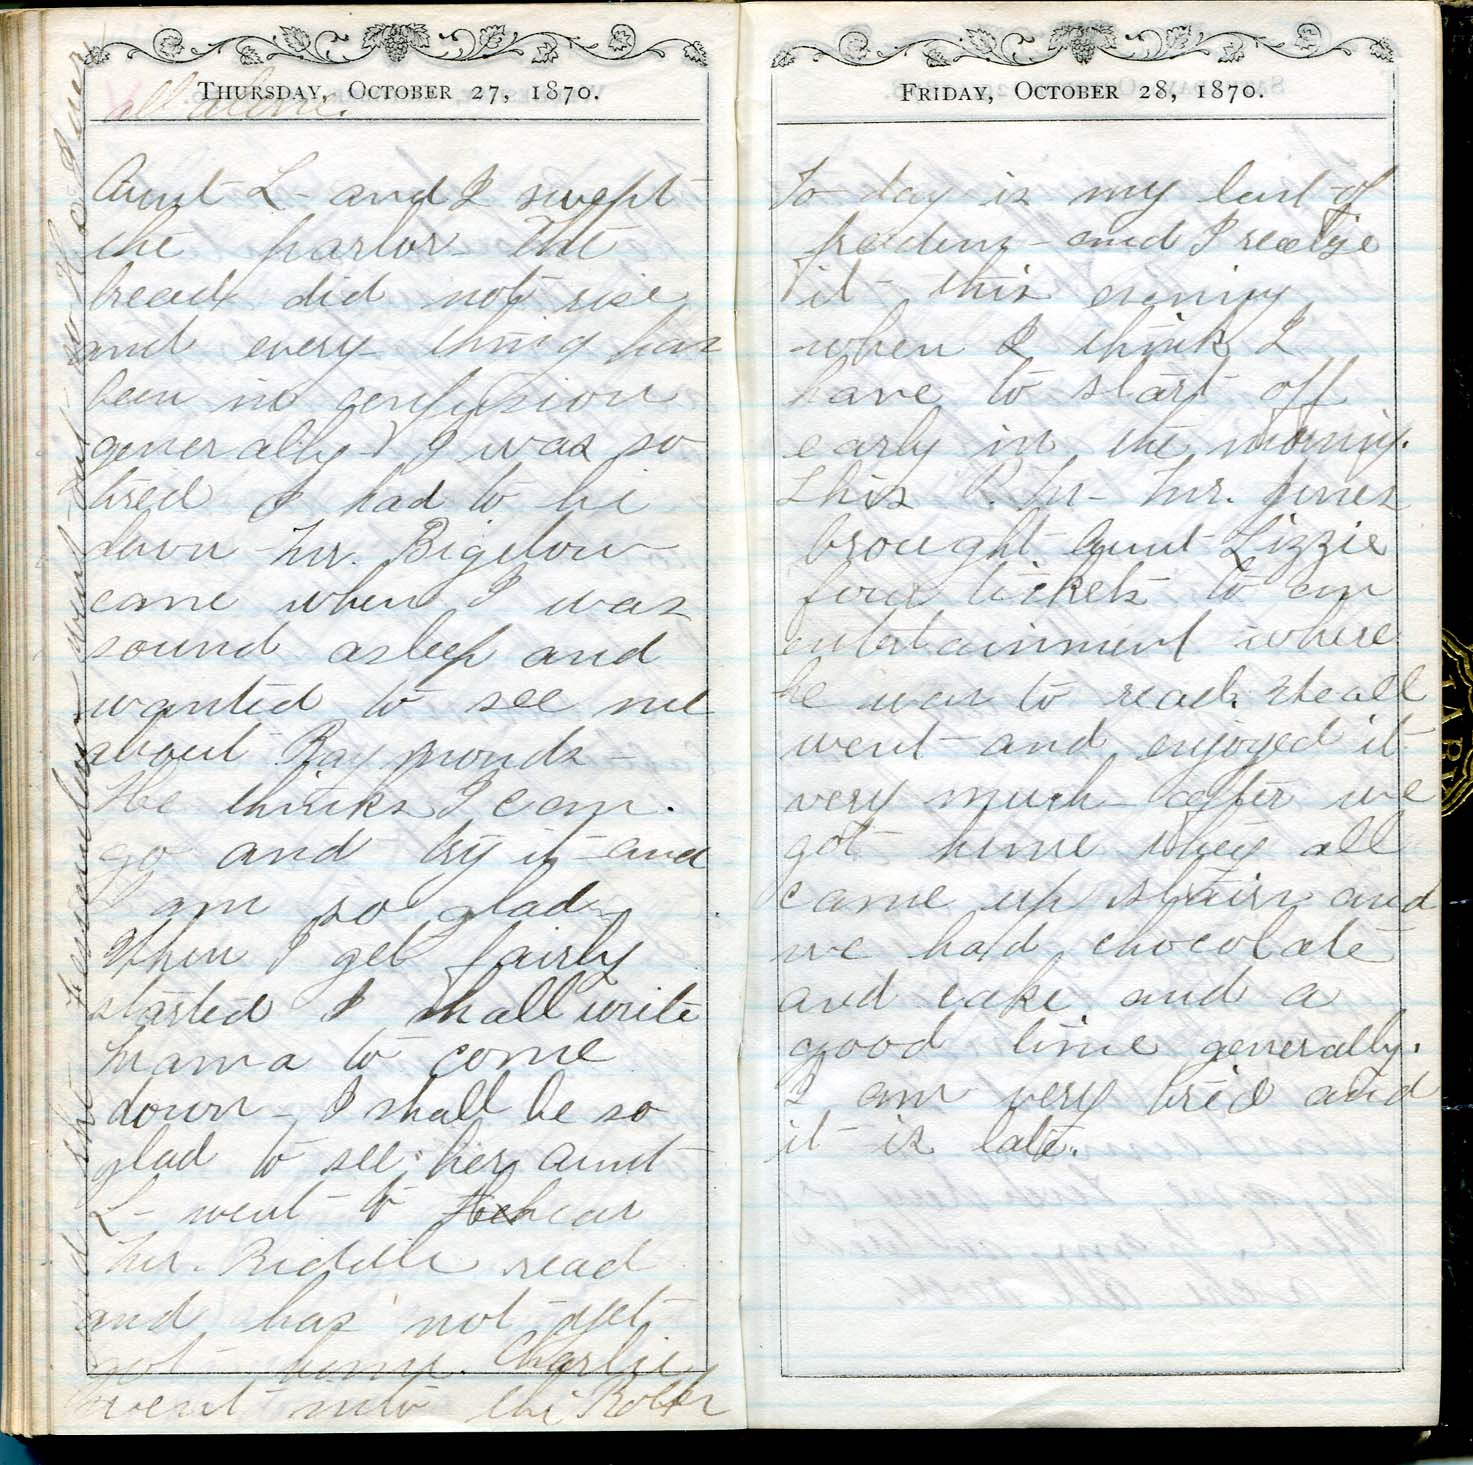 THURSDAY, OCTOBER 27, 1870.
all alone.
Aunt L- and I swept
the parlor - The
bread did not rise
and every thing has
been in confusion
generally - I was so
tired I had to lie
down - Mr. Bigelow
came when I was
sound asleep and
wanted to see me
about Raymonds -
He thinks I can.
go and try it - and
I am so glad -
When I get fairly
started I shall write
Mama to come
down - I shall be so
glad to see her, Aunt
L- went to hear
Mr. Riddle read
and has not yet
got home. Charlie
went into the
and she
went out
so
FRIDAY, OCTOBER 28, 1870.
To day is my last of
freedom - and I realize
it this evening
when I think I
have to start off
early in the morning.
This P.M - Mr. Jones
brought Aunt Lizzie
four tickets to an
entertainment where
he was to read. We all
went - and enjoyed it
very much - after we
got home they all
came up stairs and
we had chocolate
and cake and a
good time generally.
I am very tired and
it is late.